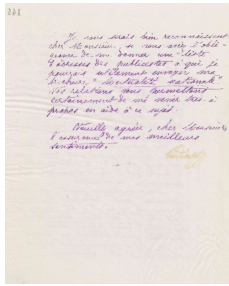 Je vous serais bien reconnaissant
cher Monsieur, si vous aviez l'obli-
geance de me donner une liste
d'adresses des publicistes à qui je
pourrais utilement envoyer ma
brochure, "Neutralité nationale"
Vos relations vous permettent
certainement de me venir très à
propos en aide à ce sujet.
Veuillez agréer, cher Monsieur
l'assurance de mes meilleurs
sentiments.